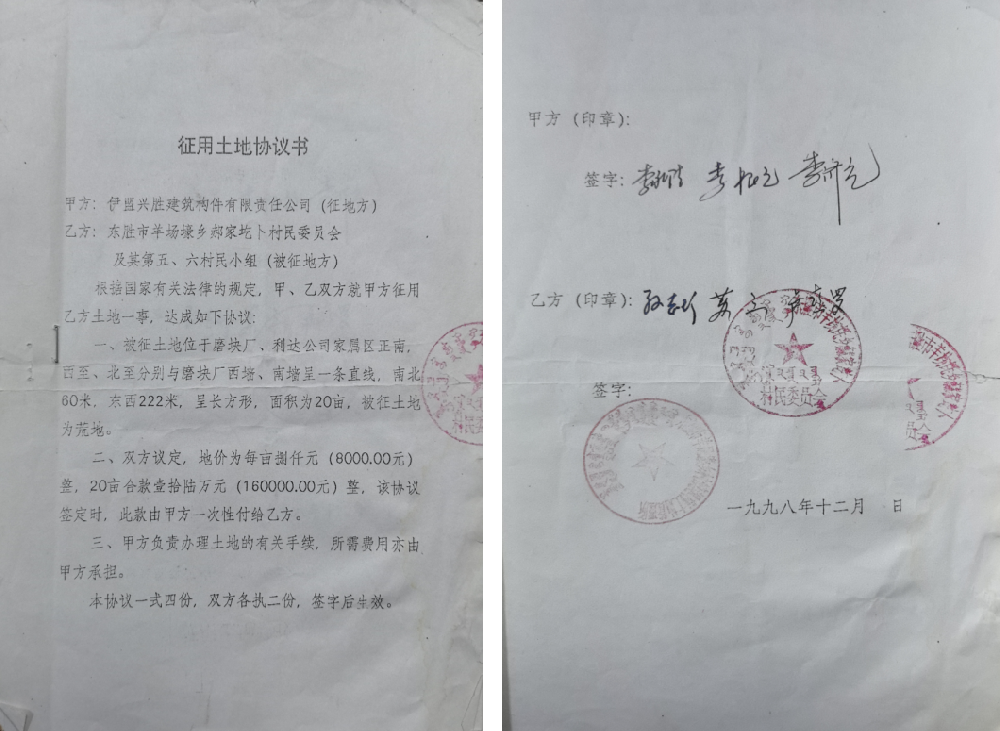 征用土地协议书
甲方：伊盟兴胜建筑构件有限责任公司（征地方）
乙方：东胜市羊场壕乡郝家圪卜村民委员会
及其第五、六村民小组（被征地方）
根据国家有关法律的规定，甲、乙双方就甲方征用
乙方土地一事，达成如下协议：
一、被征土地位于磨块厂、利达公司家属区正南，
西至、北至分别与磨块厂西墙、南墙呈一条直线，南北
60米，东西222米，呈长方形，面积为20亩，被征土地
为荒地。
二、双方议定，地价为每亩捌仟元（8000.00元）
整，20亩合款壹拾陆万元（160000.00元）整，该协议
签定时，此款由甲方一次性付给乙方。
三、甲方负责办理土地的有关手续，所需费用亦由
甲方承担。
本协议一式四份，双方各执二份，签字后生效。
甲方（印章）：
签字：
乙方（印章）：
村民委员会
签字：
一九九八年十二月 日